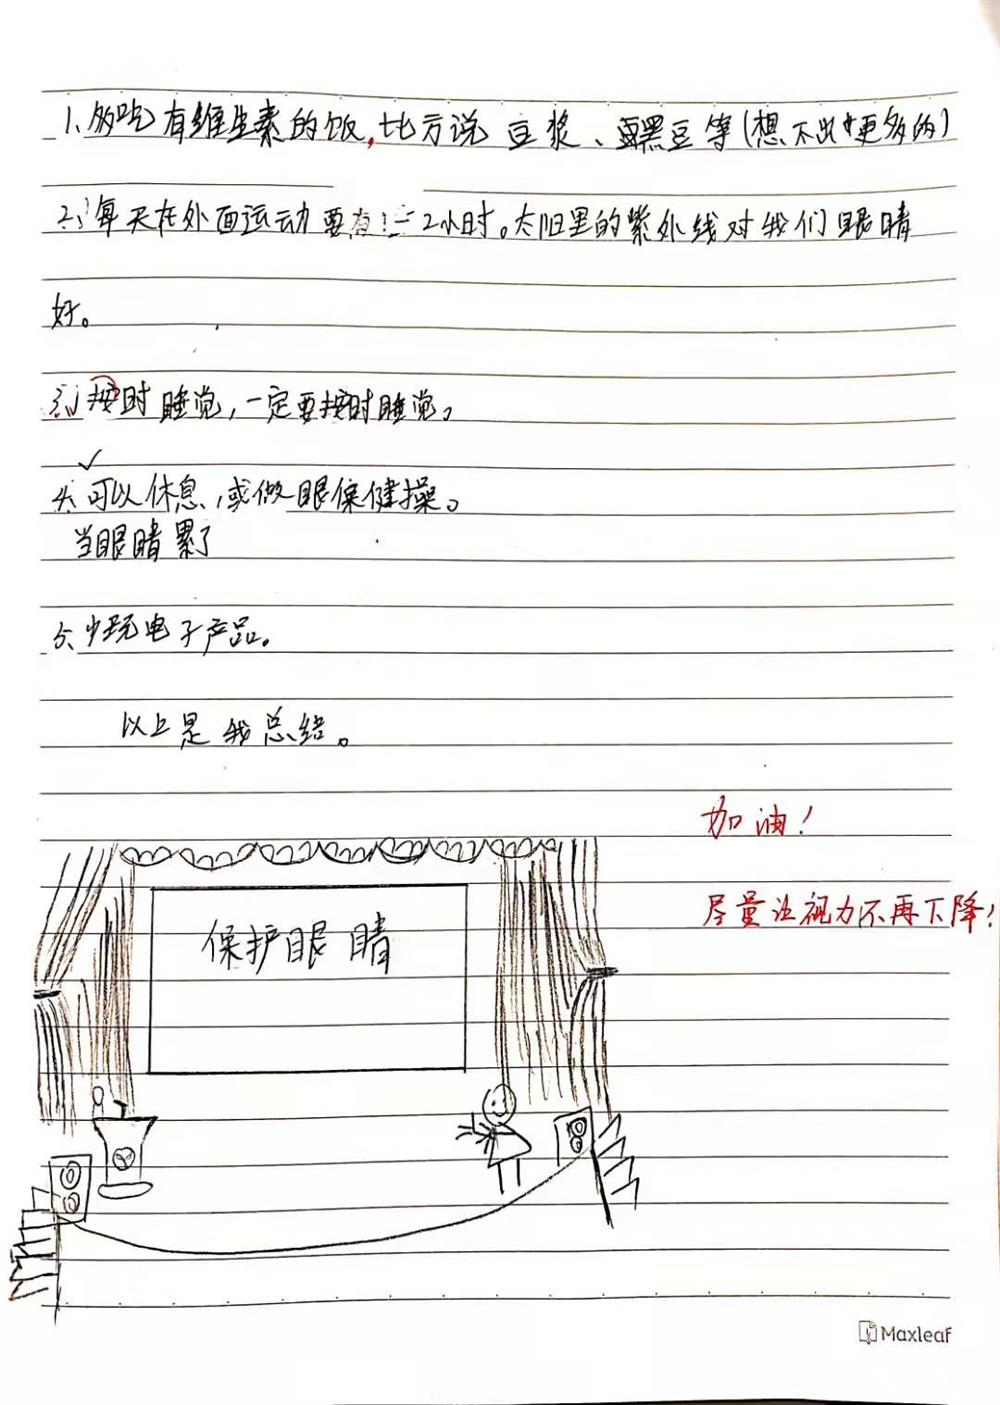 1、多吃有维生素的饭,比方说 豆浆、黑豆等(想不出更多的)
2、每天在外面运动要有1-2小时。太阳里的紫外线对我们眼睛
好。
3、按时睡觉,一定要按时睡觉。
4、可以休息,或做眼保健操。
当眼睛累了
5、少玩电子产品。
以上是我总结。
加油!
尽量让视力不再下降!
保护眼睛
Maxleaf